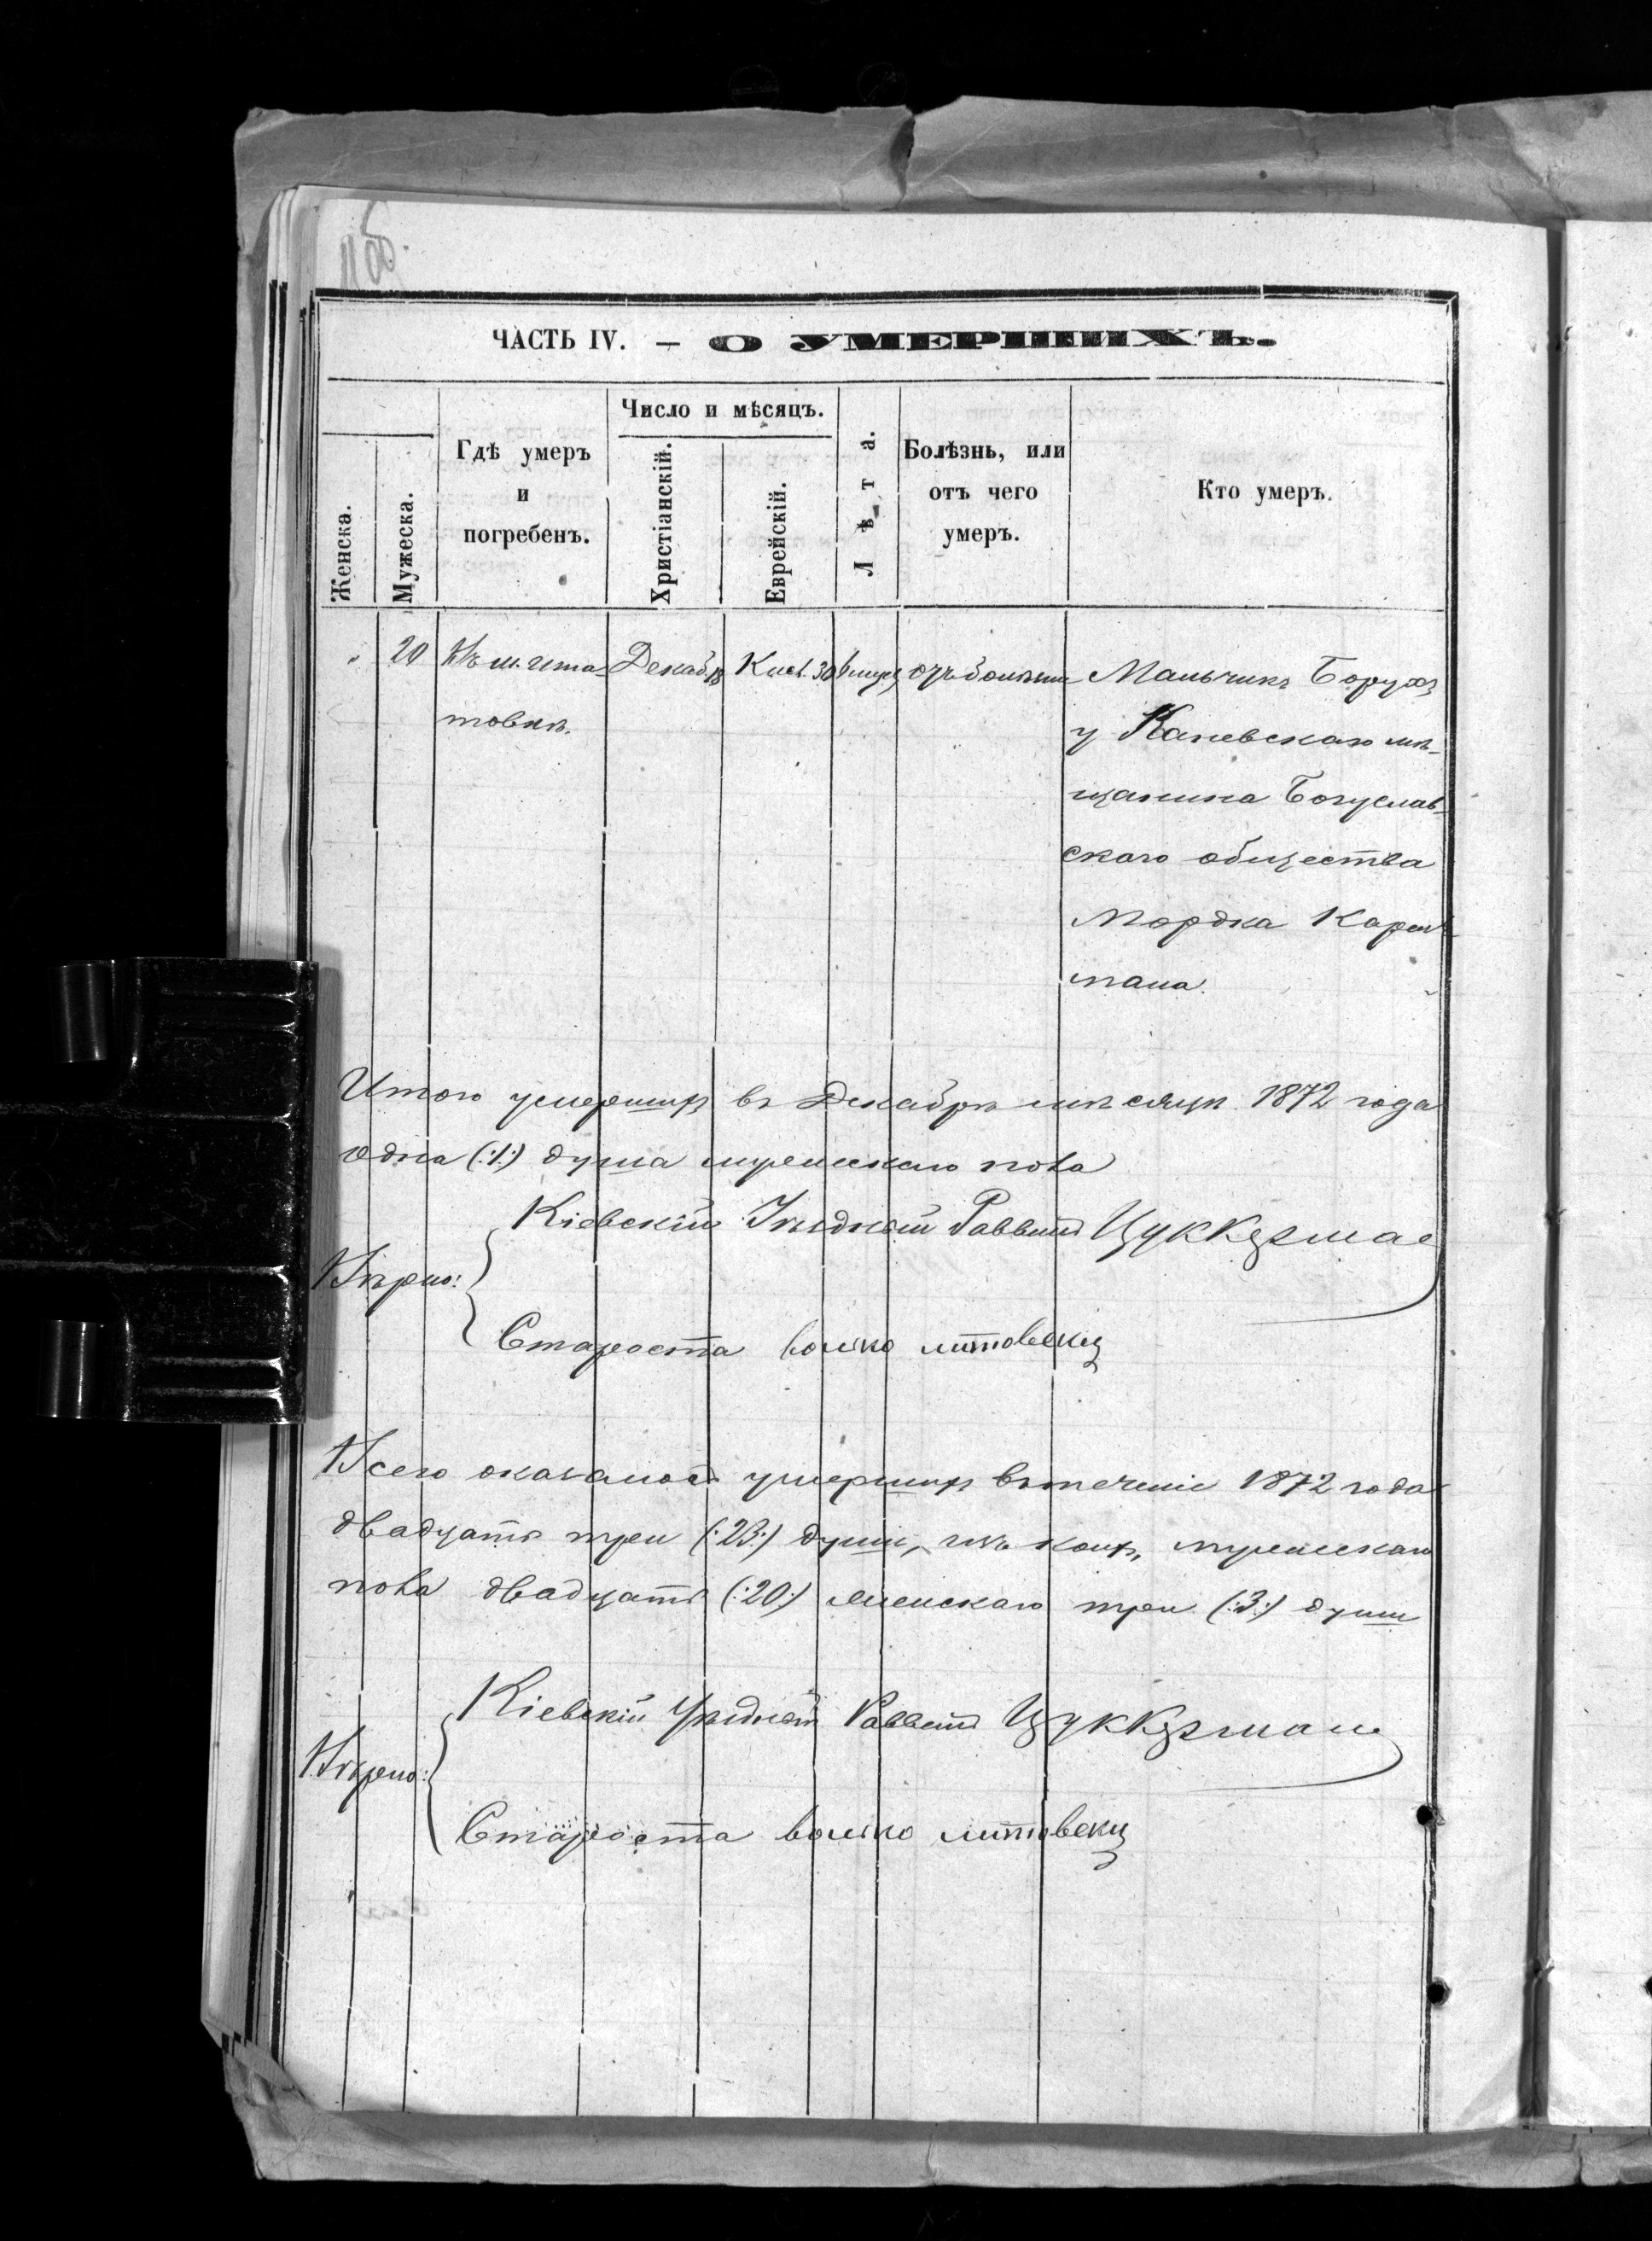 ЧАСТЬ IV. — О УМЕРШИХЪ.
Женска.
Мужеска.
Гдѣ умеръ
и
погребенъ.
Число и мѣсяцъ.
Христіанскій.
Еврейскій.
Лѣта.
Болѣзнь, или
отъ чего
умеръ.
Кто умеръ.
20 Въ м. Игна- Декабр. 18 Кисл. 30
товкѣ.
Мальчикъ Борухъ
у Каневскаго мѣ-
щанина Богуслав-
скаго общества
Мордка
мана.
Итого умершихъ въ Декабрѣ мѣсяцѣ 1872 года
одна (:1:) душа мужескаго пола
Кіевскій Уѣздный Раввинъ Цуккерман
Вѣрно:
Староста Волько Литовский
Всего оказалось умершихъ въ теченіе 1872 года
двадцать три (:23:) души, изъ коихъ, мужескаго
пола двадцать (:20:) женскаго три (:3:) души
Кіевскій Уѣздный Раввинъ Цуккерман
Вѣрно:
Староста Волько Литовский